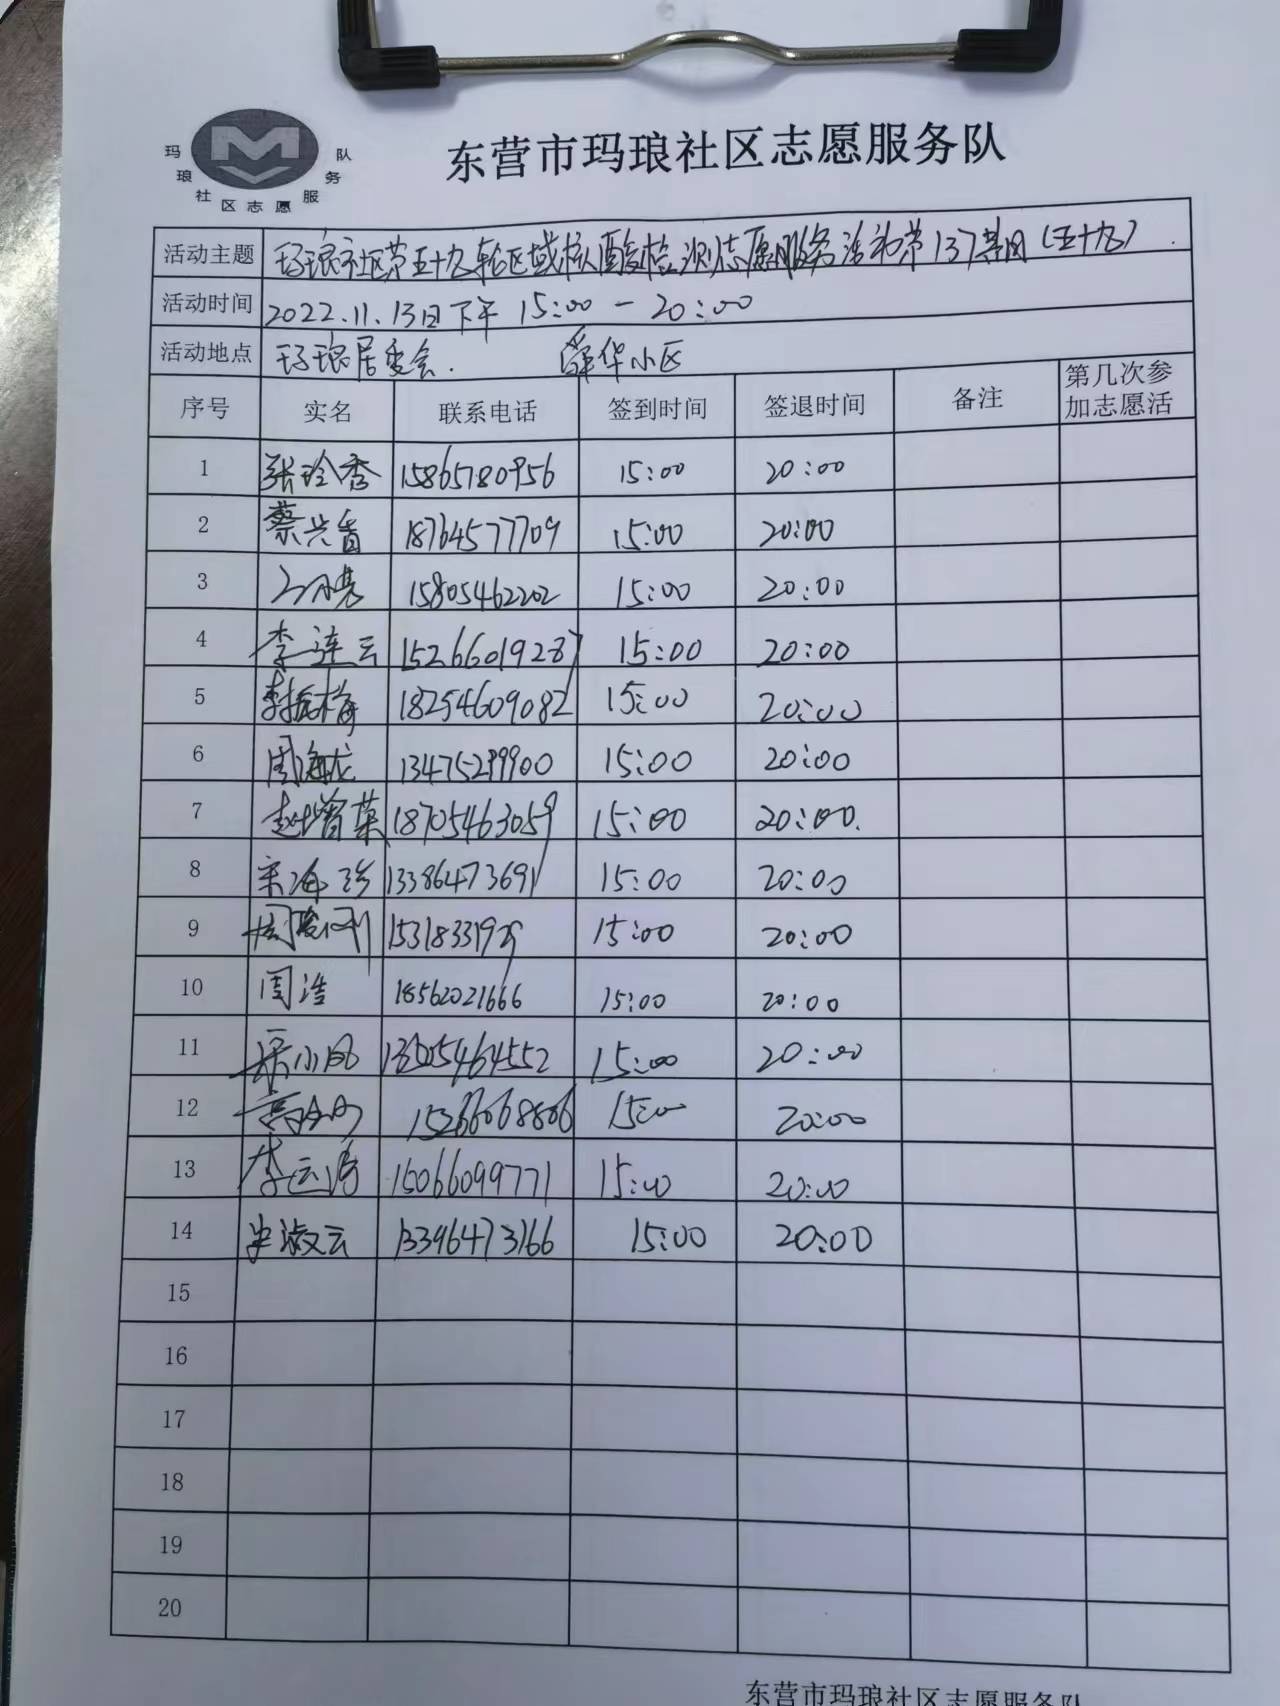 玛琅社区志愿服务队
东营市玛琅社区志愿服务队
活动主题 玛琅社区第五十九轮区域核酸检测志愿服务活动第137期(五十九)
活动时间 2022.11.13日下午 15:00-20:00
活动地点 玛琅居委会. 舜华小区
序号 实名 联系电话 签到时间 签退时间 备注 第几次参加志愿活
1 张玲秀 15865780956 15:00 20:00
2 蔡兴香 18764577709 15:00 20:00
3 15805462202 15:00 20:00
4 李连云 15266019287 15:00 20:00
5 李振梅 18254609082 15:00 20:00
6 周海龙 13475299900 15:00 20:00
7 赵增菜 18705463059 15:00 20:00.
8 宋海珍 13386473691 15:00 20:00
9 15:00 20:00
10 周浩 18562021666 15:00 20:00
11 梁小凤 13505464552 15:00 20:00
12 15266068806 15:00 20:00
13 李运涛 15066099771 15:00 20:00
14 史淑云 13396473166 15:00 20:00
15
16
17
18
19
20
东营市玛琅社区志愿服务队